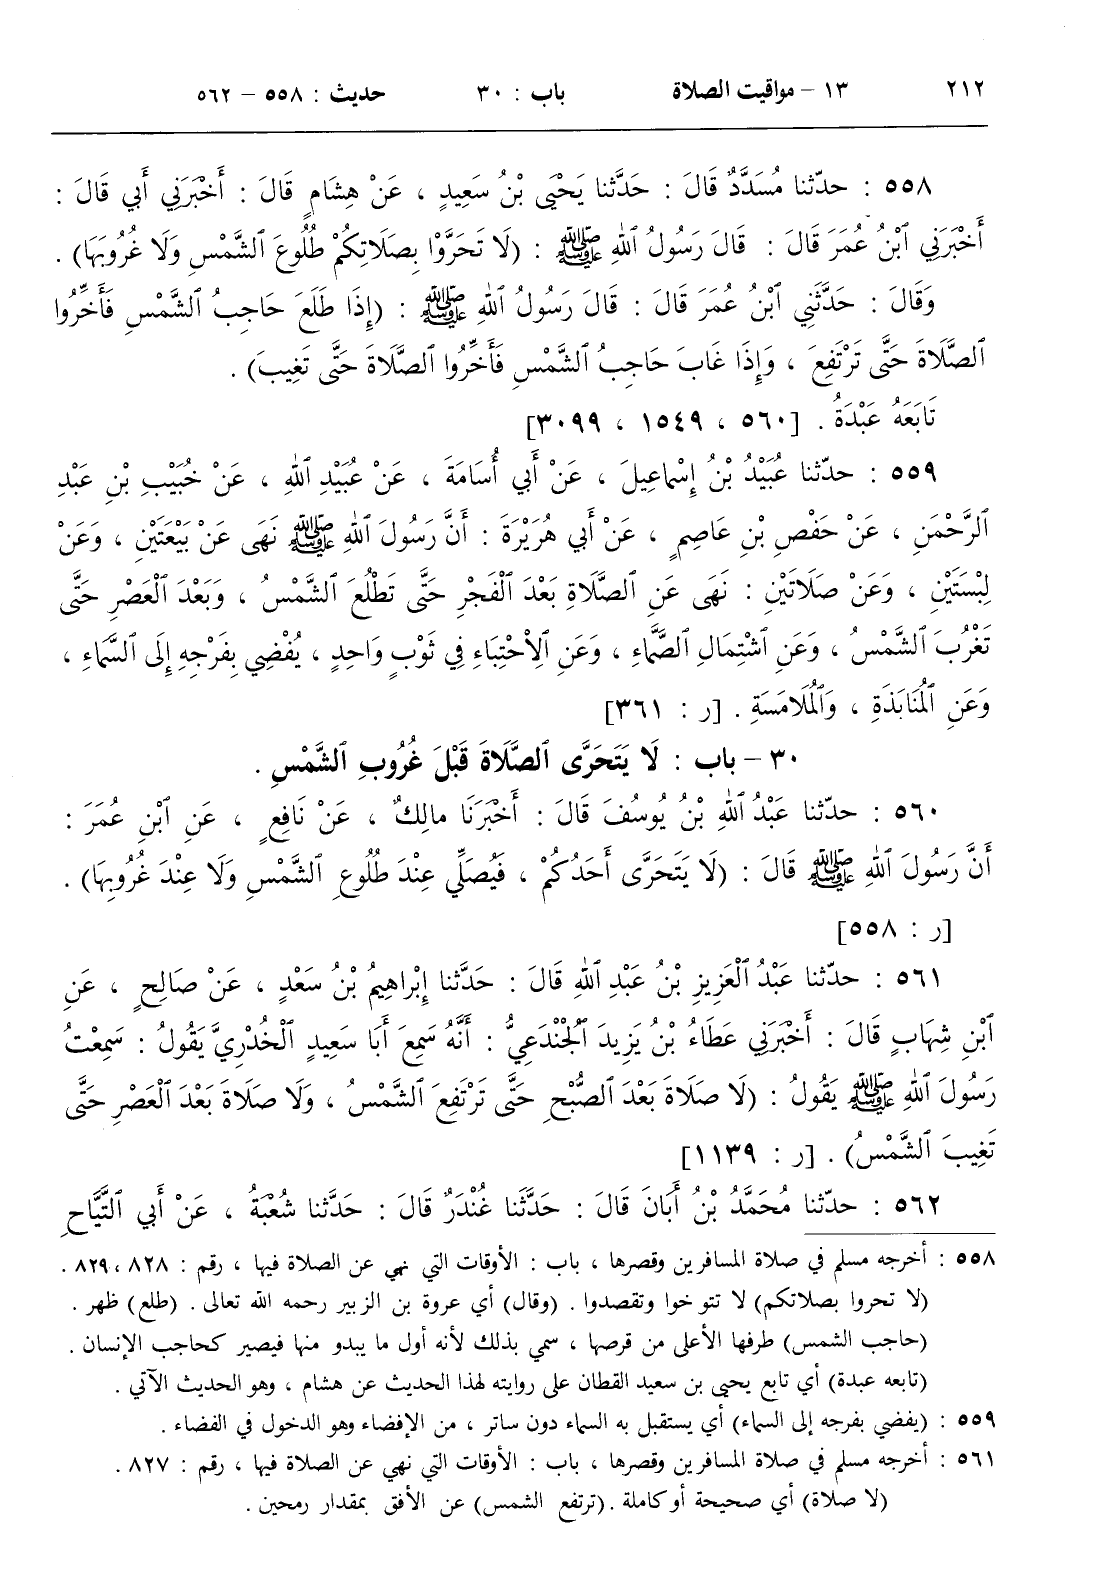 ٢١٢ ١٣ – مواقيت الصلاة باب : ٣٠ حديث : ٥٥٨ – ٥٦٢
٥٥٨ : حدّثنا مُسَدَّدٌ قَالَ : حَدَّثَنا يَحْيَى بْنُ سَعِيدٍ ، عَنْ هِشَامٍ قَالَ : أَخْبَرَنِي أَبِي قَالَ :
أَخْبَرَنِي ٱبْنُ عُمَرَ قَالَ : قَالَ رَسُولُ ٱللهِ ﷺ : (لَا تَحَرَّوْا بِصَلَاتِكُمْ طُلُوعَ ٱلشَّمْسِ وَلَا غُرُوبَهَا) .
وَقَالَ : حَدَّثَنِي ٱبْنُ عُمَرَ قَالَ : قَالَ رَسُولُ ٱللهِ ﷺ : (إِذَا طَلَعَ حَاجِبُ ٱلشَّمْسِ فَأَخِّرُوا
ٱلصَّلَاةَ حَتَّى تَرْتَفِعَ ، وَإِذَا غَابَ حَاجِبُ ٱلشَّمْسِ فَأَخِّرُوا ٱلصَّلَاةَ حَتَّى تَغِيبَ) .
تَابَعَهُ عَبْدَةُ . [٥٦٠ ، ١٥٤٩ ، ٣٠٩٩]
٥٥٩ : حدّثنا عُبَيْدُ بْنُ إِسْمَاعِيلَ ، عَنْ أَبِي أُسَامَةَ ، عَنْ عُبَيْدِ ٱللهِ ، عَنْ خُبَيْبِ بْنِ عَبْدِ
ٱلرَّحْمٰنِ ، عَنْ حَفْصِ بْنِ عَاصِمٍ ، عَنْ أَبِي هُرَيْرَةَ : أَنَّ رَسُولَ ٱللهِ ﷺ نَهَى عَنْ بَيْعَتَيْنِ ، وَعَنْ
لِبْسَتَيْنِ ، وَعَنْ صَلَاتَيْنِ : نَهَى عَنِ ٱلصَّلَاةِ بَعْدَ ٱلْفَجْرِ حَتَّى تَطْلُعَ ٱلشَّمْسُ ، وَبَعْدَ ٱلْعَصْرِ حَتَّى
تَغْرُبَ ٱلشَّمْسُ ، وَعَنِ ٱشْتِمَالِ ٱلصَّمَّاءِ ، وَعَنِ ٱلِٱحْتِبَاءِ فِي ثَوْبٍ وَاحِدٍ ، يُفْضِي بِفَرْجِهِ إِلَى ٱلسَّمَاءِ ،
وَعَنِ ٱلْمُنَابَذَةِ ، وَٱلْمُلَامَسَةِ . [ر : ٣٦١]
٣٠ – باب : لَا يَتَحَرَّى ٱلصَّلَاةَ قَبْلَ غُرُوبِ ٱلشَّمْسِ .
٥٦٠ : حدّثنا عَبْدُ ٱللهِ بْنُ يُوسُفَ قَالَ : أَخْبَرَنَا مالِكٌ ، عَنْ نَافِعٍ ، عَنِ ٱبْنِ عُمَرَ :
أَنَّ رَسُولَ ٱللهِ ﷺ قَالَ : (لَا يَتَحَرَّى أَحَدُكُمْ ، فَيُصَلِّي عِنْدَ طُلُوعِ ٱلشَّمْسِ وَلَا عِنْدَ غُرُوبِهَا) .
[ر : ٥٥٨]
٥٦١ : حدّثنا عَبْدُ ٱلْعَزِيزِ بْنُ عَبْدِ ٱللهِ قَالَ : حَدَّثَنا إِبْرَاهِيمُ بْنُ سَعْدٍ ، عَنْ صَالِحٍ ، عَنِ
ٱبْنِ شِهَابٍ قَالَ : أَخْبَرَنِي عَطَاءُ بْنُ يَزِيدَ ٱلْجُنْدَعِيُّ : أَنَّهُ سَمِعَ أَبَا سَعِيدٍ ٱلْخُدْرِيَّ يَقُولُ : سَمِعْتُ
رَسُولَ ٱللهِ ﷺ يَقُولُ : (لَا صَلَاةَ بَعْدَ ٱلصُّبْحِ حَتَّى تَرْتَفِعَ ٱلشَّمْسُ ، وَلَا صَلَاةَ بَعْدَ ٱلْعَصْرِ حَتَّى
تَغِيبَ ٱلشَّمْسُ) . [ر : ١١٣٩]
٥٦٢ : حدّثنا مُحَمَّدُ بْنُ أَبَانَ قَالَ : حَدَّثَنا غُنْدَرٌ قَالَ : حَدَّثَنا شُعْبَةُ ، عَنْ أَبِي ٱلتَّيَّاحِ
٥٥٨ : أخرجه مسلم في صلاة المسافرين وقصرها ، باب : الأوقات التي نهي عن الصلاة فيها ، رقم : ٨٢٨ ، ٨٢٩ .
(لا تحروا بصلاتكم) لا تتوخوا وتقصدوا . (وقال) أي عروة بن الزبير رحمه الله تعالى . (طلع) ظهر .
(حاجب الشمس) طرفها الأعلى من قرصها ، سمي بذلك لأنه أول ما يبدو منها فيصير كحاجب الإنسان .
(تابعه عبدة) أي تابع يحيى بن سعيد القطان على روايته لهذا الحديث عن هشام ، وهو الحديث الآتي .
٥٥٩ : (يفضي بفرجه إلى السماء) أي يستقبل به السماء دون ساتر ، من الإفضاء وهو الدخول في الفضاء .
٥٦١ : أخرجه مسلم في صلاة المسافرين وقصرها ، باب : الأوقات التي نهي عن الصلاة فيها ، رقم : ٨٢٧ .
(لا صلاة) أي صحيحة أو كاملة . (ترتفع الشمس) عن الأفق بمقدار رمحين .